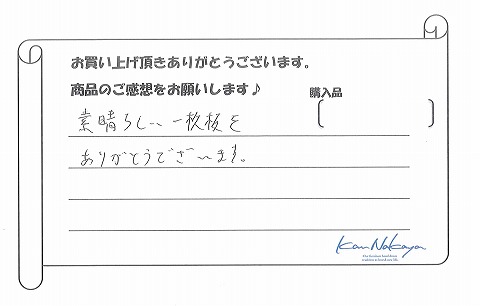 お買い上げ頂きありがとうございます。
商品のご感想をお願いします♪
購入品
素晴らしい一枚板を
ありがとうございます。
Kan Nakaya